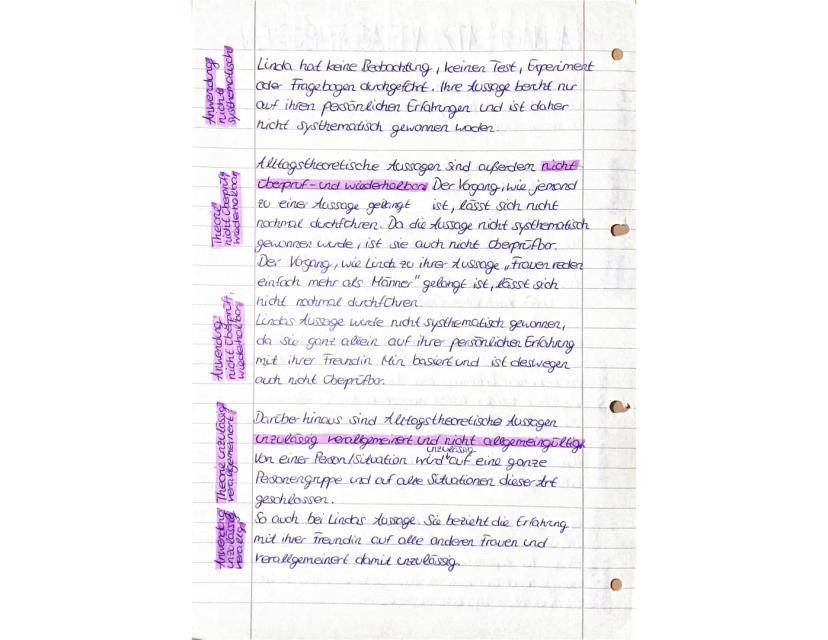 Anwendung
nicht
systhematisch
Linda hat keine Beobachtung, keinen Test, Experiment
oder Fragebogen durchgeführt. Ihre Aussage beruht nur
auf ihren persönlichen Erfahrungen und ist daher
nicht systhematisch gewonnen worden.
Theorie
nicht überprüf,
wiederholbar
Alltagstheoretische Aussagen sind außerdem nicht
überprüf- und wiederholbar. Der Vorgang, wie jemand
zu einer Aussage gelangt ist, lässt sich nicht
nochmal durchführen. Da die Aussage nicht systhematisch
gewonnen wurde, ist sie auch nicht überprüfbar.
Der Vorgang, wie Linda zu ihrer Aussage „Frauen reden
einfach mehr als Männer" gelangt ist, lässt sich
nicht nochmal durchführen.
Anwendung
nicht überprüf,
wiederholbar
Lindas Aussage wurde nicht systhematisch gewonnen,
da sie ganz allein auf ihrer persönlichen Erfahrung
mit ihrer Freundin Miri basiert und ist deswegen
auch nicht überprüfbar.
Theorie unzulässig
verallgemeinert
Darüber hinaus sind Alltagstheoretische Aussagen
unzulässig verallgemeinert und nicht allgemeingültig.
Von einer Person/Situation wird unzulässig auf eine ganze
Personengruppe und auf alle Situationen dieser Art
geschlossen.
Anwendung
unzulässig
verallg.
So auch bei Lindas Aussage. Sie bezieht die Erfahrung
mit ihrer Freundin auf alle anderen Frauen und
verallgemeinert damit unzulässig.